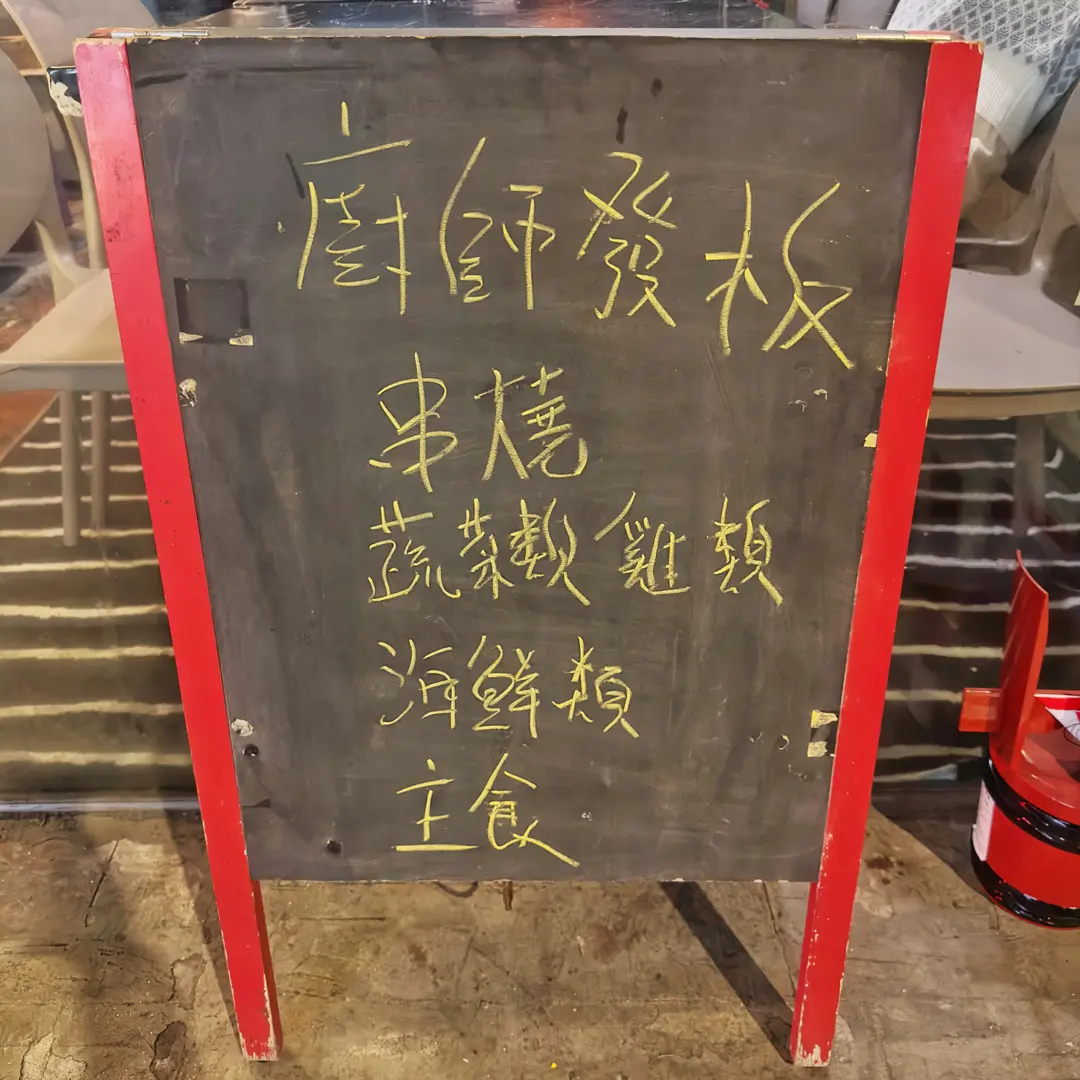 廚師發板
串燒
蔬菜類 雞類
海鮮類
主食